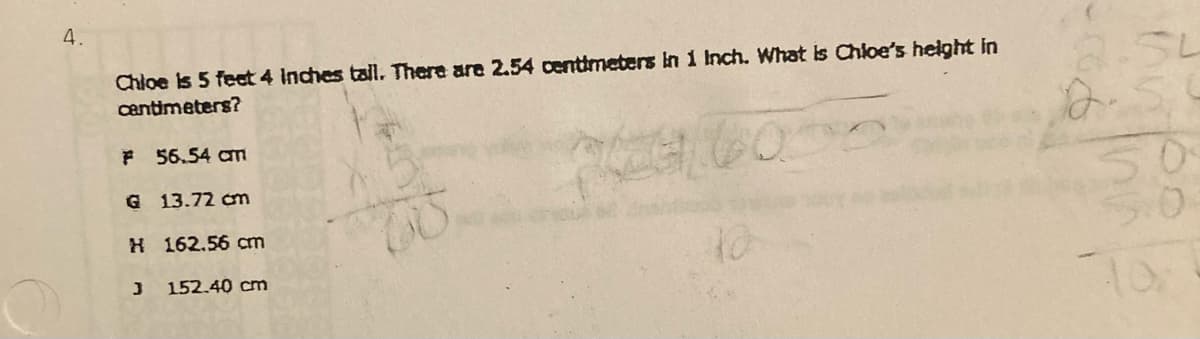 4.
Chloe is 5 feet 4 inches tall. There are 2.54 centimeters in 1 inch. What is Chloe's height in
centimeters?
F 56.54 cm
G 13.72 cm
H 162.56 cm
J 152.40 cm
12
x 5
60